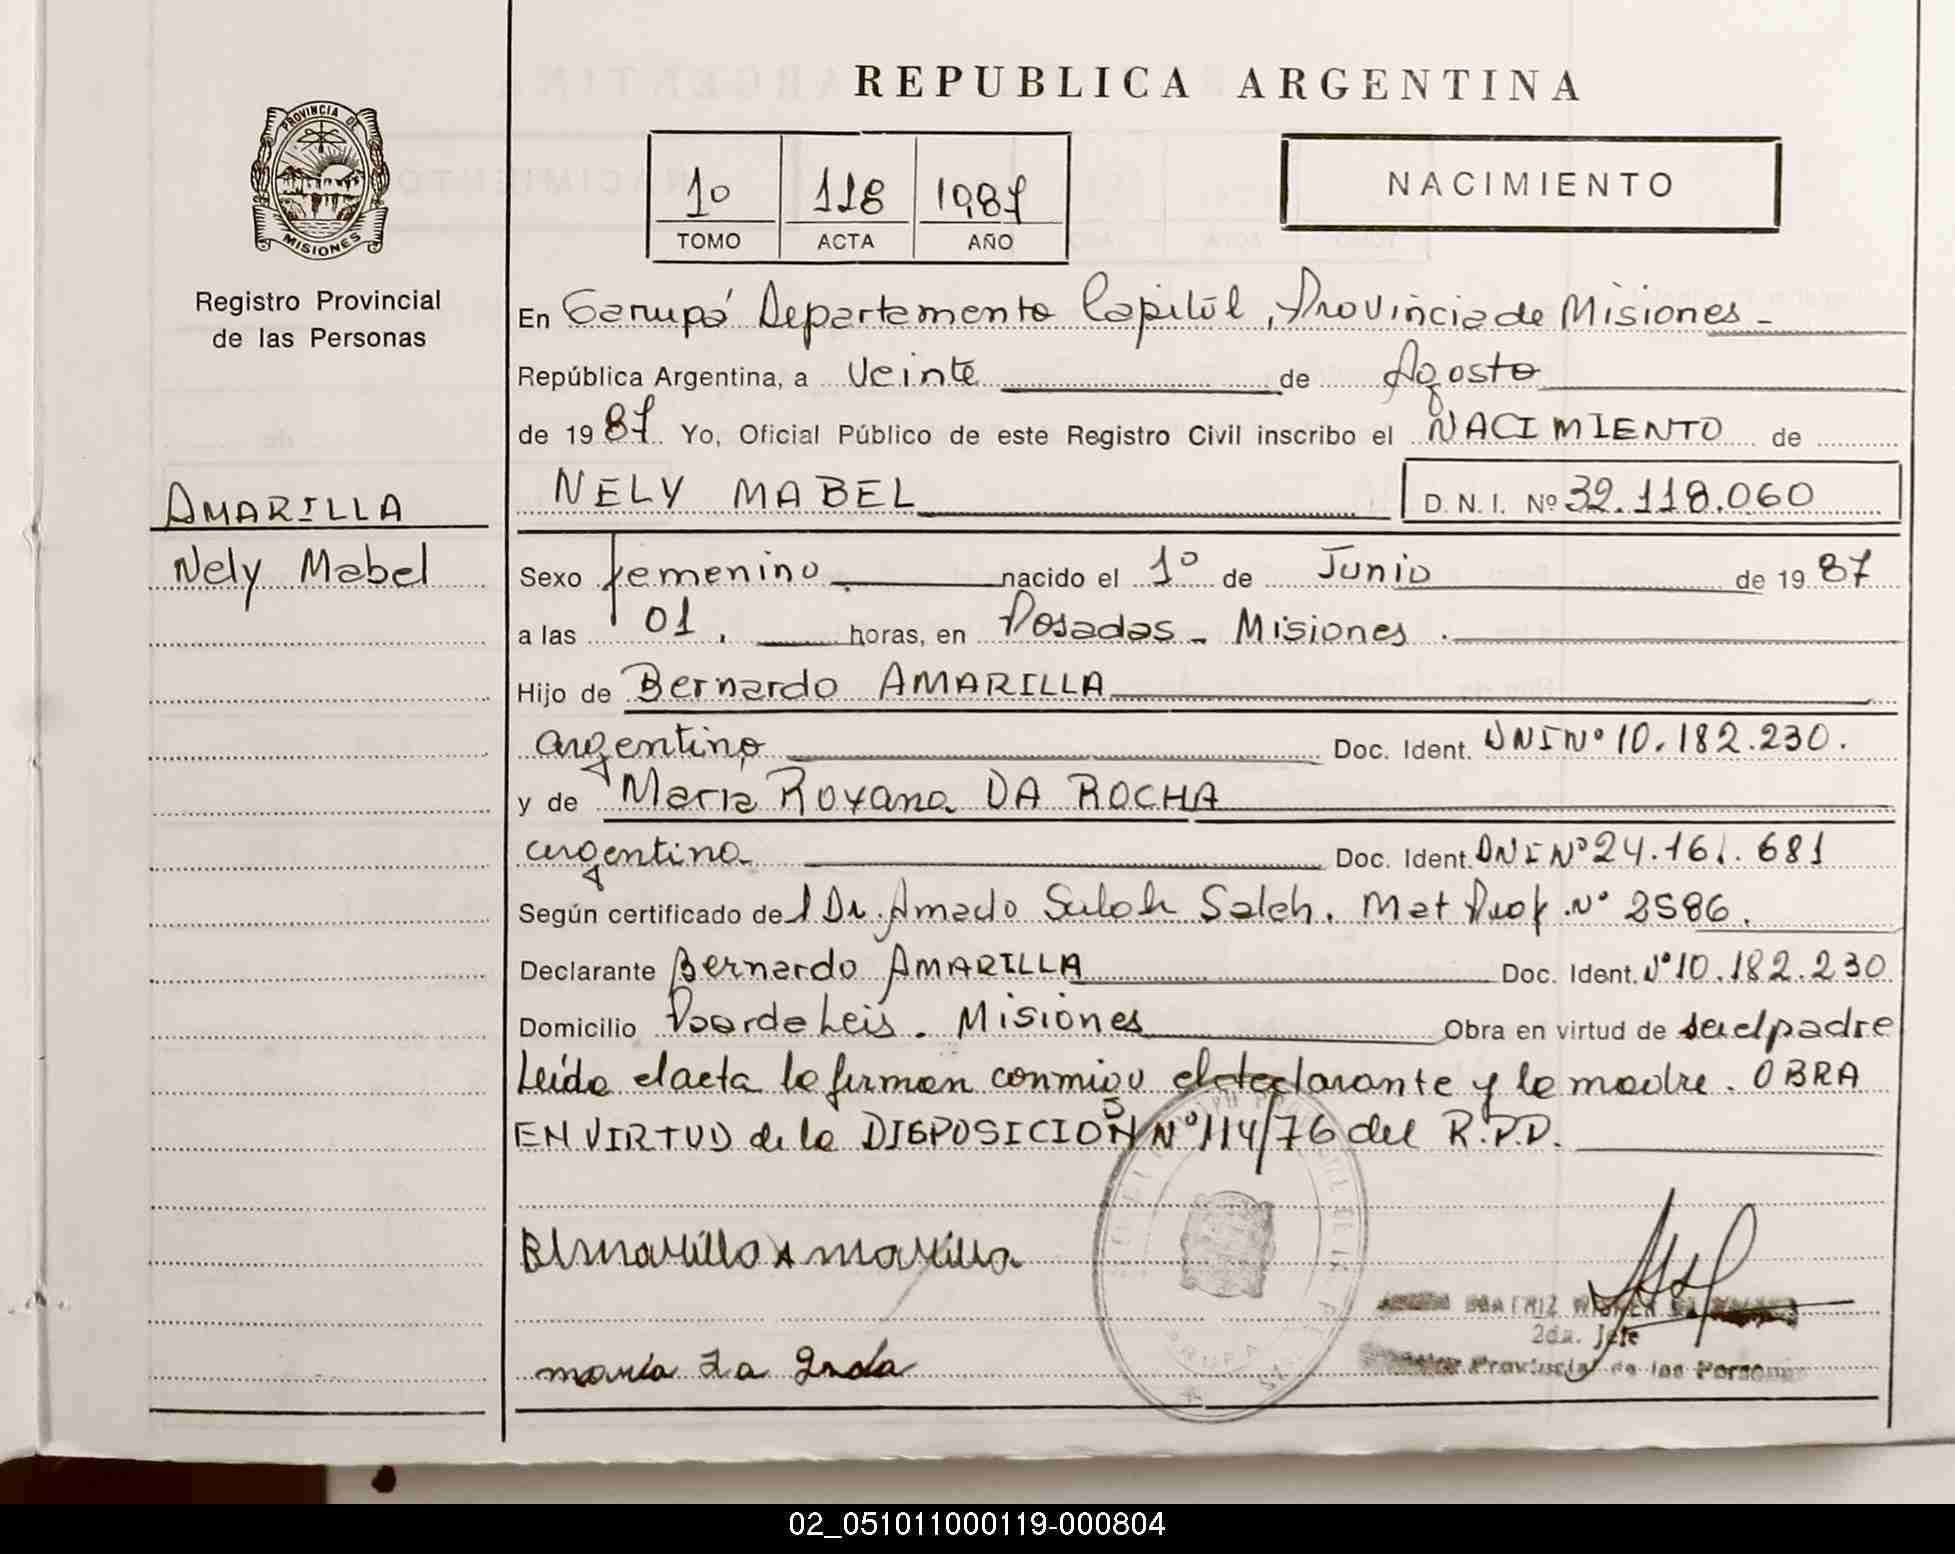 REPUBLICA ARGENTINA
PROVINCIA DE
MISIONES
Registro Provincial
de las Personas
1º 118 1987
TOMO ACTA AÑO
NACIMIENTO
En Garupá Departamento Capital, Provincia de Misiones -
República Argentina, a Veinte de Agosto
de 1987 Yo, Oficial Público de este Registro Civil inscribo el NACIMIENTO de
NELY MABEL D. N. I. Nº 32.118.060
AMARILLA
Nely Mabel
Sexo femenino nacido el 1º de Junio de 1987
a las 01. horas, en Posadas - Misiones.
Hijo de Bernardo AMARILLA
argentino Doc. Ident. DNI Nº 10.182.230.
y de Maria Roxana DA ROCHA
argentina Doc. Ident. DNI Nº 24.161.681
Según certificado del Dr. Amado Saleh. Mat Prof. Nº 2586.
Declarante Bernardo AMARILLA Doc. Ident. Nº 10.182.230
Domicilio Misiones Obra en virtud de ser el padre
Leída el acta la firman conmigo el declarante y la madre. OBRA
EN VIRTUD de la DISPOSICION Nº 114/76 del R.P.P.
Amarilla
maria
BEATRIZ
2da. Jefe
Provincial de las Personas
02_051011000119-000804